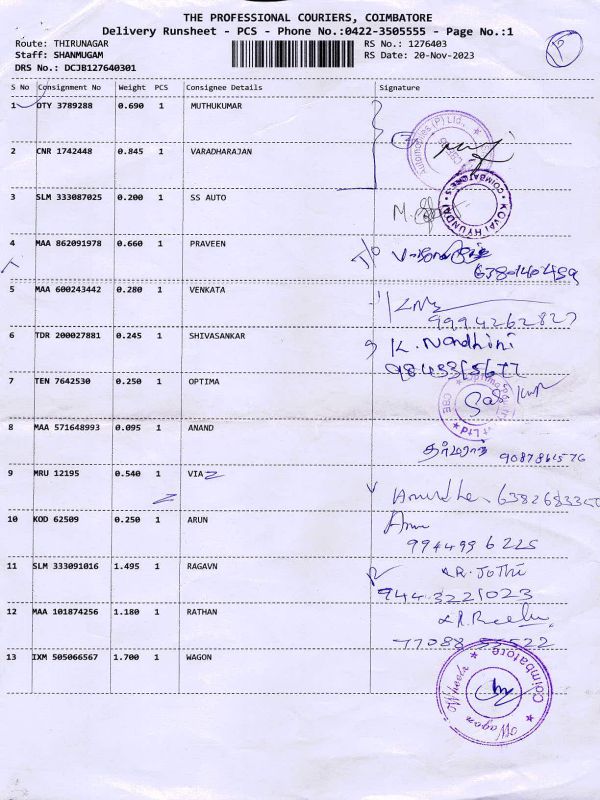 THE PROFESSIONAL COURIERS, COIMBATORE
Delivery Runsheet - PCS - Phone No.:0422-3505555 - Page No.:1
Route: THIRUNAGAR RS No.: 1276403
Staff: SHANMUGAM RS Date: 20-Nov-2023
DRS No.: DCJB127640301
S No Consignment No Weight PCS Consignee Details Signature
1 DTY 3789288 0.690 1 MUTHUKUMAR
Automobiles (P) Ltd.,
2 CNR 1742448 0.845 1 VARADHARAJAN
3 SLM 333087025 0.200 1 SS AUTO
KOVAI HYUNDAI COIMBATORE
4 MAA 862091978 0.660 1 PRAVEEN
6380140459
5 MAA 600243442 0.280 1 VENKATA
9994262827
6 TDR 200027881 0.245 1 SHIVASANKAR K. Nandhini
7 TEN 7642530 0.250 1 OPTIMA
CBE
8 MAA 571648993 0.095 1 ANAND
9 MRU 12195 0.540 1 VIA
10 KOD 62509 0.250 1 ARUN Arun
9944996225
11 SLM 333091016 1.495 1 RAGAVN R. Jothi
9443221023
12 MAA 101874256 1.180 1 RATHAN
13 IXM 505066567 1.700 1 WAGON
Wagon Wheelz Coimbatore